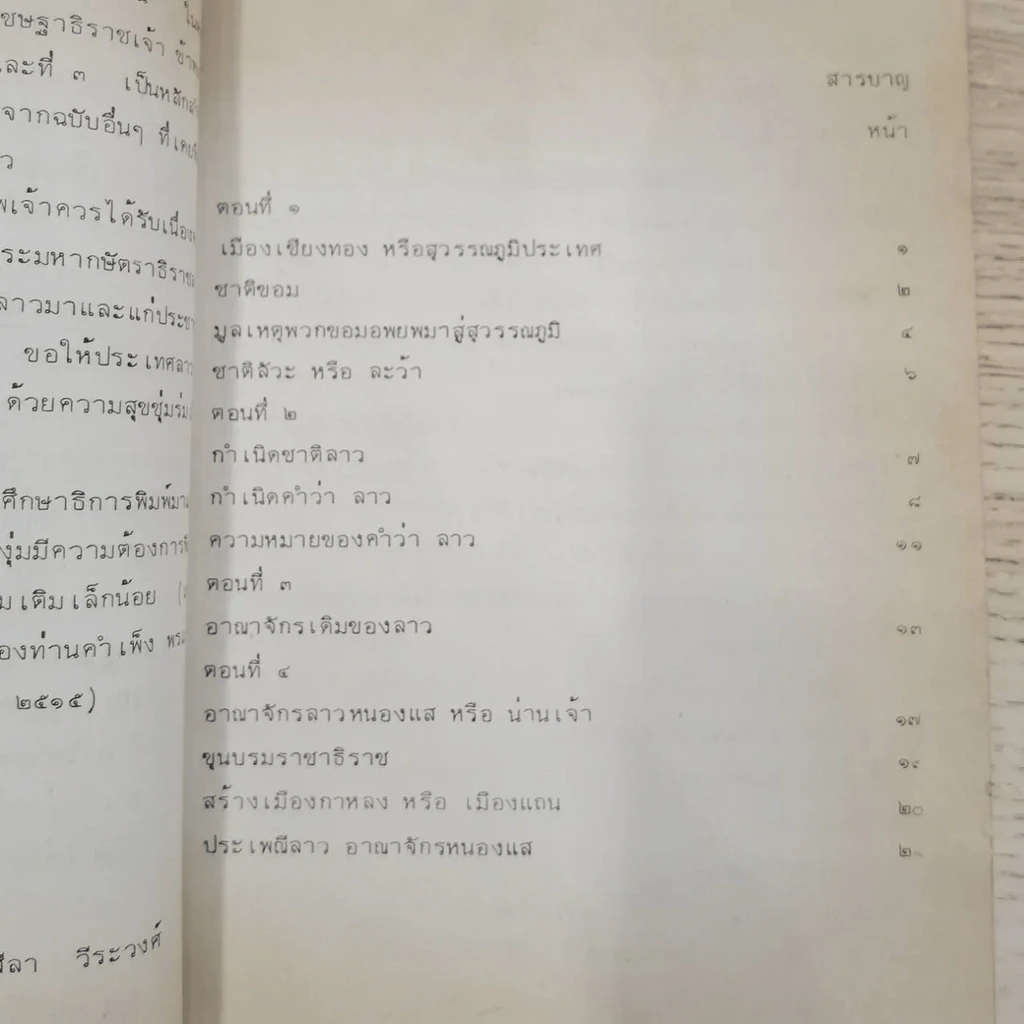 ใน
เชษฐาธิราชเจ้า
และที่ ๓ เป็นหลัก
จากฉบับอื่นๆ ที่
ว
พเจ้าควรได้รับเนื่อง
ระมหากษัตราธิราช
ลาวมาและแก่ประชา
ขอให้ประเทศลาว
ด้วยความสุขชุ่มร่ม
ศึกษาธิการพิมพ์มา
งุ่มมีความต้องการ
มเติมเล็กน้อย
องท่านคำเพ็ง พระ
๒๕๑๕)
สีลา วีระวงศ์
สารบาญ
หน้า
ตอนที่ ๑
เมืองเชียงทอง หรือสุวรรณภูมิประเทศ ๑
ชาติขอม ๒
มูลเหตุพวกขอมอพยพมาสู่สุวรรณภูมิ ๔
ชาติลัวะ หรือ ละว้า ๖
ตอนที่ ๒
กำเนิดชาติลาว ๗
กำเนิดคำว่า ลาว ๘
ความหมายของคำว่า ลาว ๑๑
ตอนที่ ๓
อาณาจักรเดิมของลาว ๑๓
ตอนที่ ๔
อาณาจักรลาวหนองแส หรือ น่านเจ้า ๑๗
ขุนบรมราชาธิราช
สร้างเมืองกาหลง หรือ เมืองแถน ๒๐
ประเพณีลาว อาณาจักรหนองแส